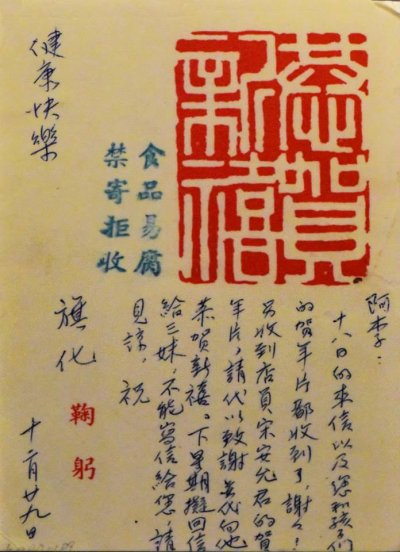 恭賀新禧
食品易腐
禁寄拒收
阿李:
十八日的來信以及您和孩子們
的賀年片都收到了,謝々!
另收到店員宋安允君的賀
年片,請代以致謝並代向他
恭賀新禧。下星期擬回信
給三妹,不能寫信給您,請
見諒,祝
健康快樂
旗化 鞠躬
十二月廿九日